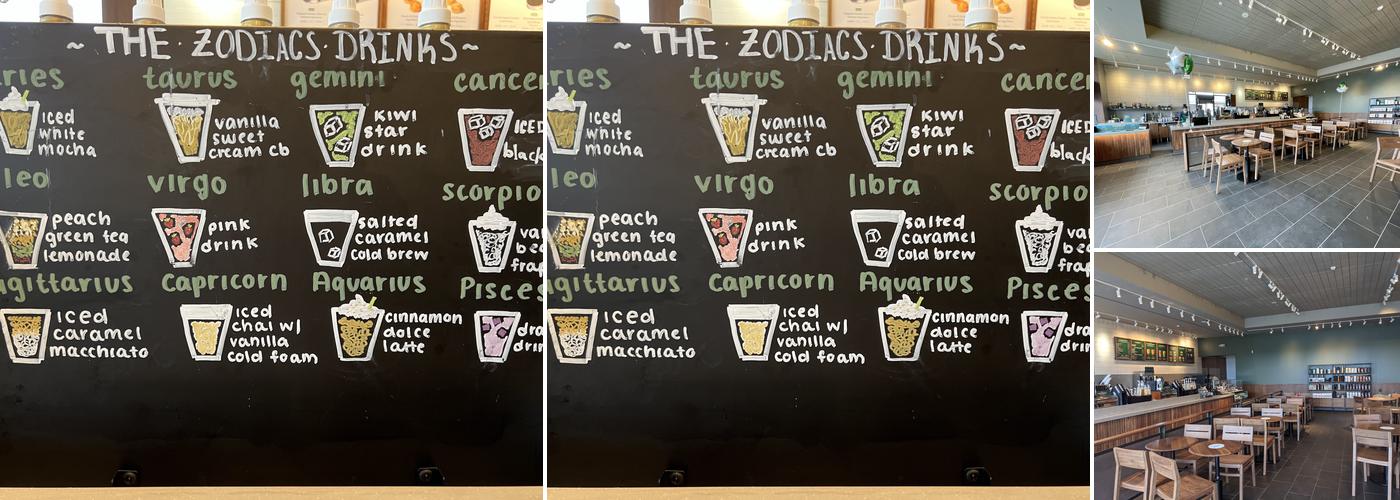 ~ THE · ZODIACS · DRINKS ~
ries taurus gemini cancer
iced white mocha
vanilla sweet cream cb
kiwi star drink
ICED black
leo virgo libra scorpio
peach green tea lemonade
pink drink
salted caramel cold brew
van bea frap
agittarius Capricorn Aquarius Pisces
iced caramel macchiato
iced chai w/ vanilla cold foam
cinnamon dolce latte
dra drin
~ THE · ZODIACS · DRINKS ~
ries taurus gemini cancer
iced white mocha
vanilla sweet cream cb
kiwi star drink
ICED black
leo virgo libra scorpio
peach green tea lemonade
pink drink
salted caramel cold brew
van bea frap
agittarius Capricorn Aquarius Pisces
iced caramel macchiato
iced chai w/ vanilla cold foam
cinnamon dolce latte
dra drin